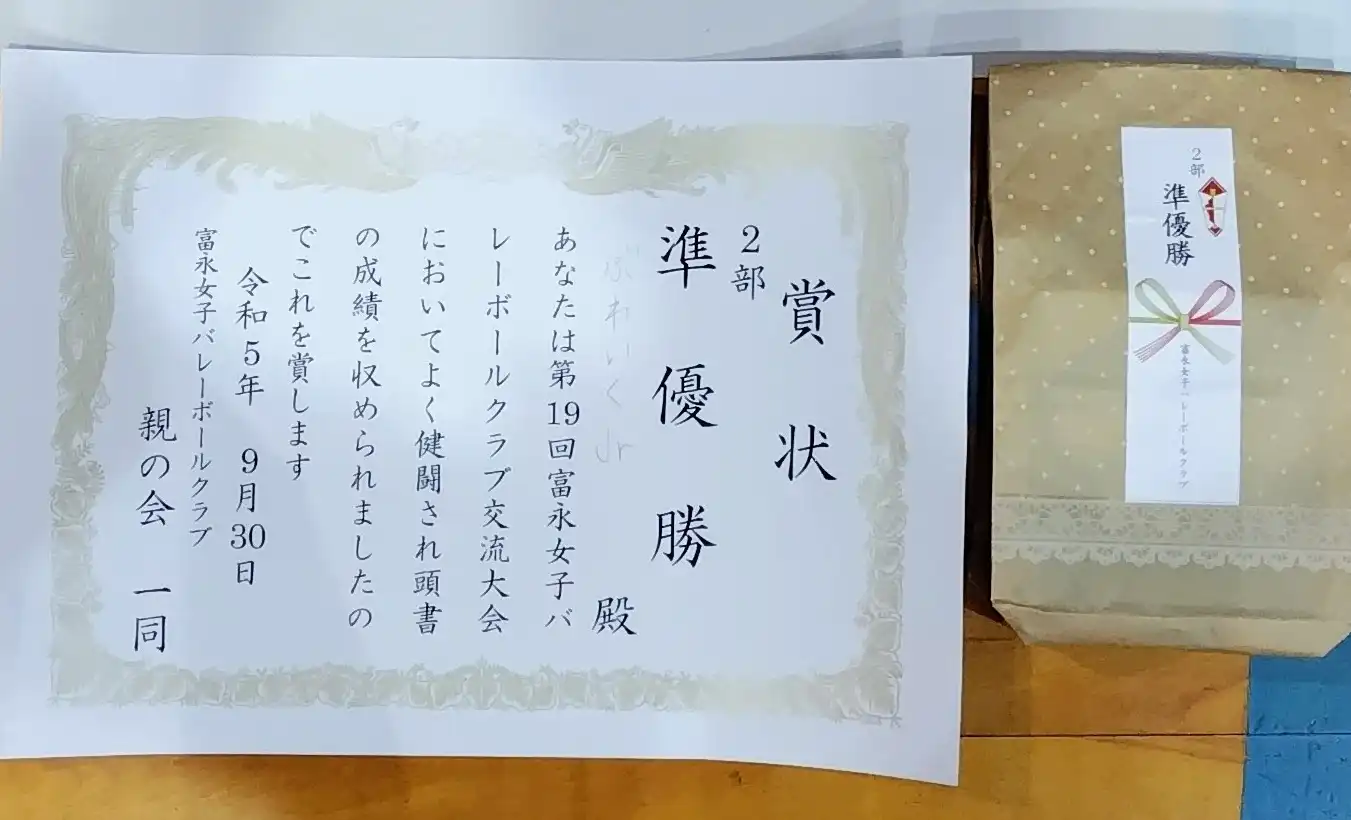 賞状
2部
準優勝
ぶれいくJr
殿
あなたは第19回富永女子バ
レーボールクラブ交流大会
においてよく健闘され頭書
の成績を収められましたの
でこれを賞します
令和5年 9月30日
富永女子バレーボールクラブ
親の会 一同
2部
準優勝
富永女子バレーボールクラブ